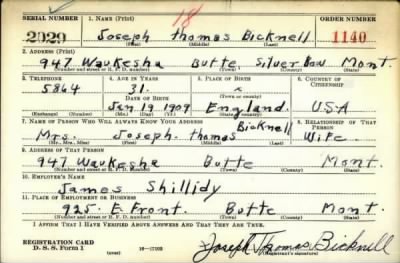 SERIAL NUMBER 1. NAME (Print) 18 ORDER NUMBER
2029 Joseph Thomas Bicknell 1140
(First) (Middle) (Last)
2. ADDRESS (Print)
947 Waukesha Butte Silver Bow Mont.
(Number and street or R. F. D. number) (Town) (County) (State)
3. TELEPHONE 4. AGE IN YEARS 5. PLACE OF BIRTH 6. COUNTRY OF CITIZENSHIP
5864 31 x
DATE OF BIRTH (Town or county)
Jan 19 1909 England USA
(Exchange) (Number) (Mo.) (Day) (Yr.) (State or country)
7. NAME OF PERSON WHO WILL ALWAYS KNOW YOUR ADDRESS 8. RELATIONSHIP OF THAT PERSON
Mrs. Joseph. Thomas Bicknell Wife
(Mr., Mrs., Miss) (First) (Middle) (Last)
9. ADDRESS OF THAT PERSON
947 Waukesha Butte Mont.
(Number and street or R. F. D. number) (Town) (County) (State)
10. EMPLOYER'S NAME
James Shillidy
11. PLACE OF EMPLOYMENT OR BUSINESS
925. E. Front. Butte Mont.
(Number and street or R. F. D. number) (Town) (County) (State)
I AFFIRM THAT I HAVE VERIFIED ABOVE ANSWERS AND THAT THEY ARE TRUE.
REGISTRATION CARD
D. S. S. FORM 1 16-17105 Joseph Thomas Bicknell
(over) (Registrant's signature)